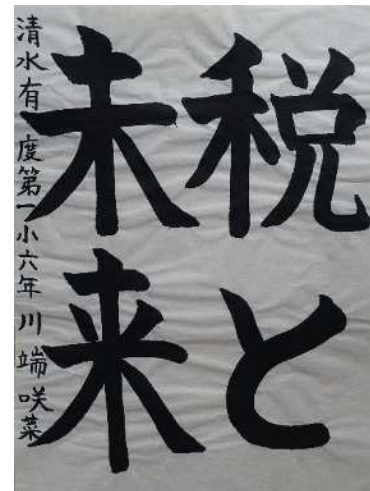 税と
未来
清水有度第一小六年 川端咲菜